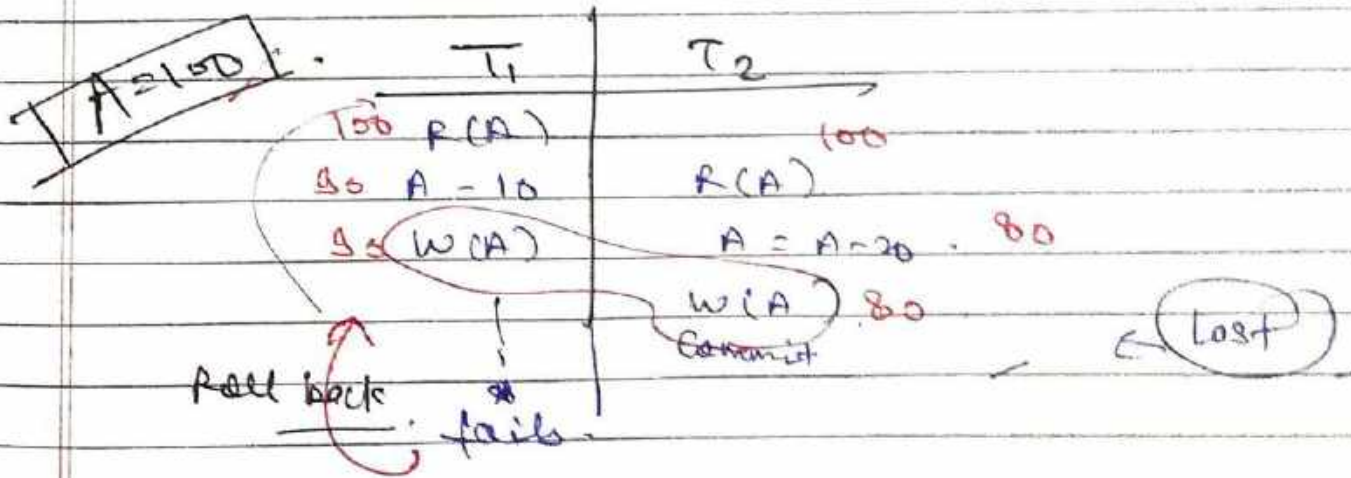 A=100 T1 T2
100 R(A) 100
90 A - 10 R(A)
90 W(A) A = A-20 . 80
W(A) 80
Commit Lost
Roll back
fails